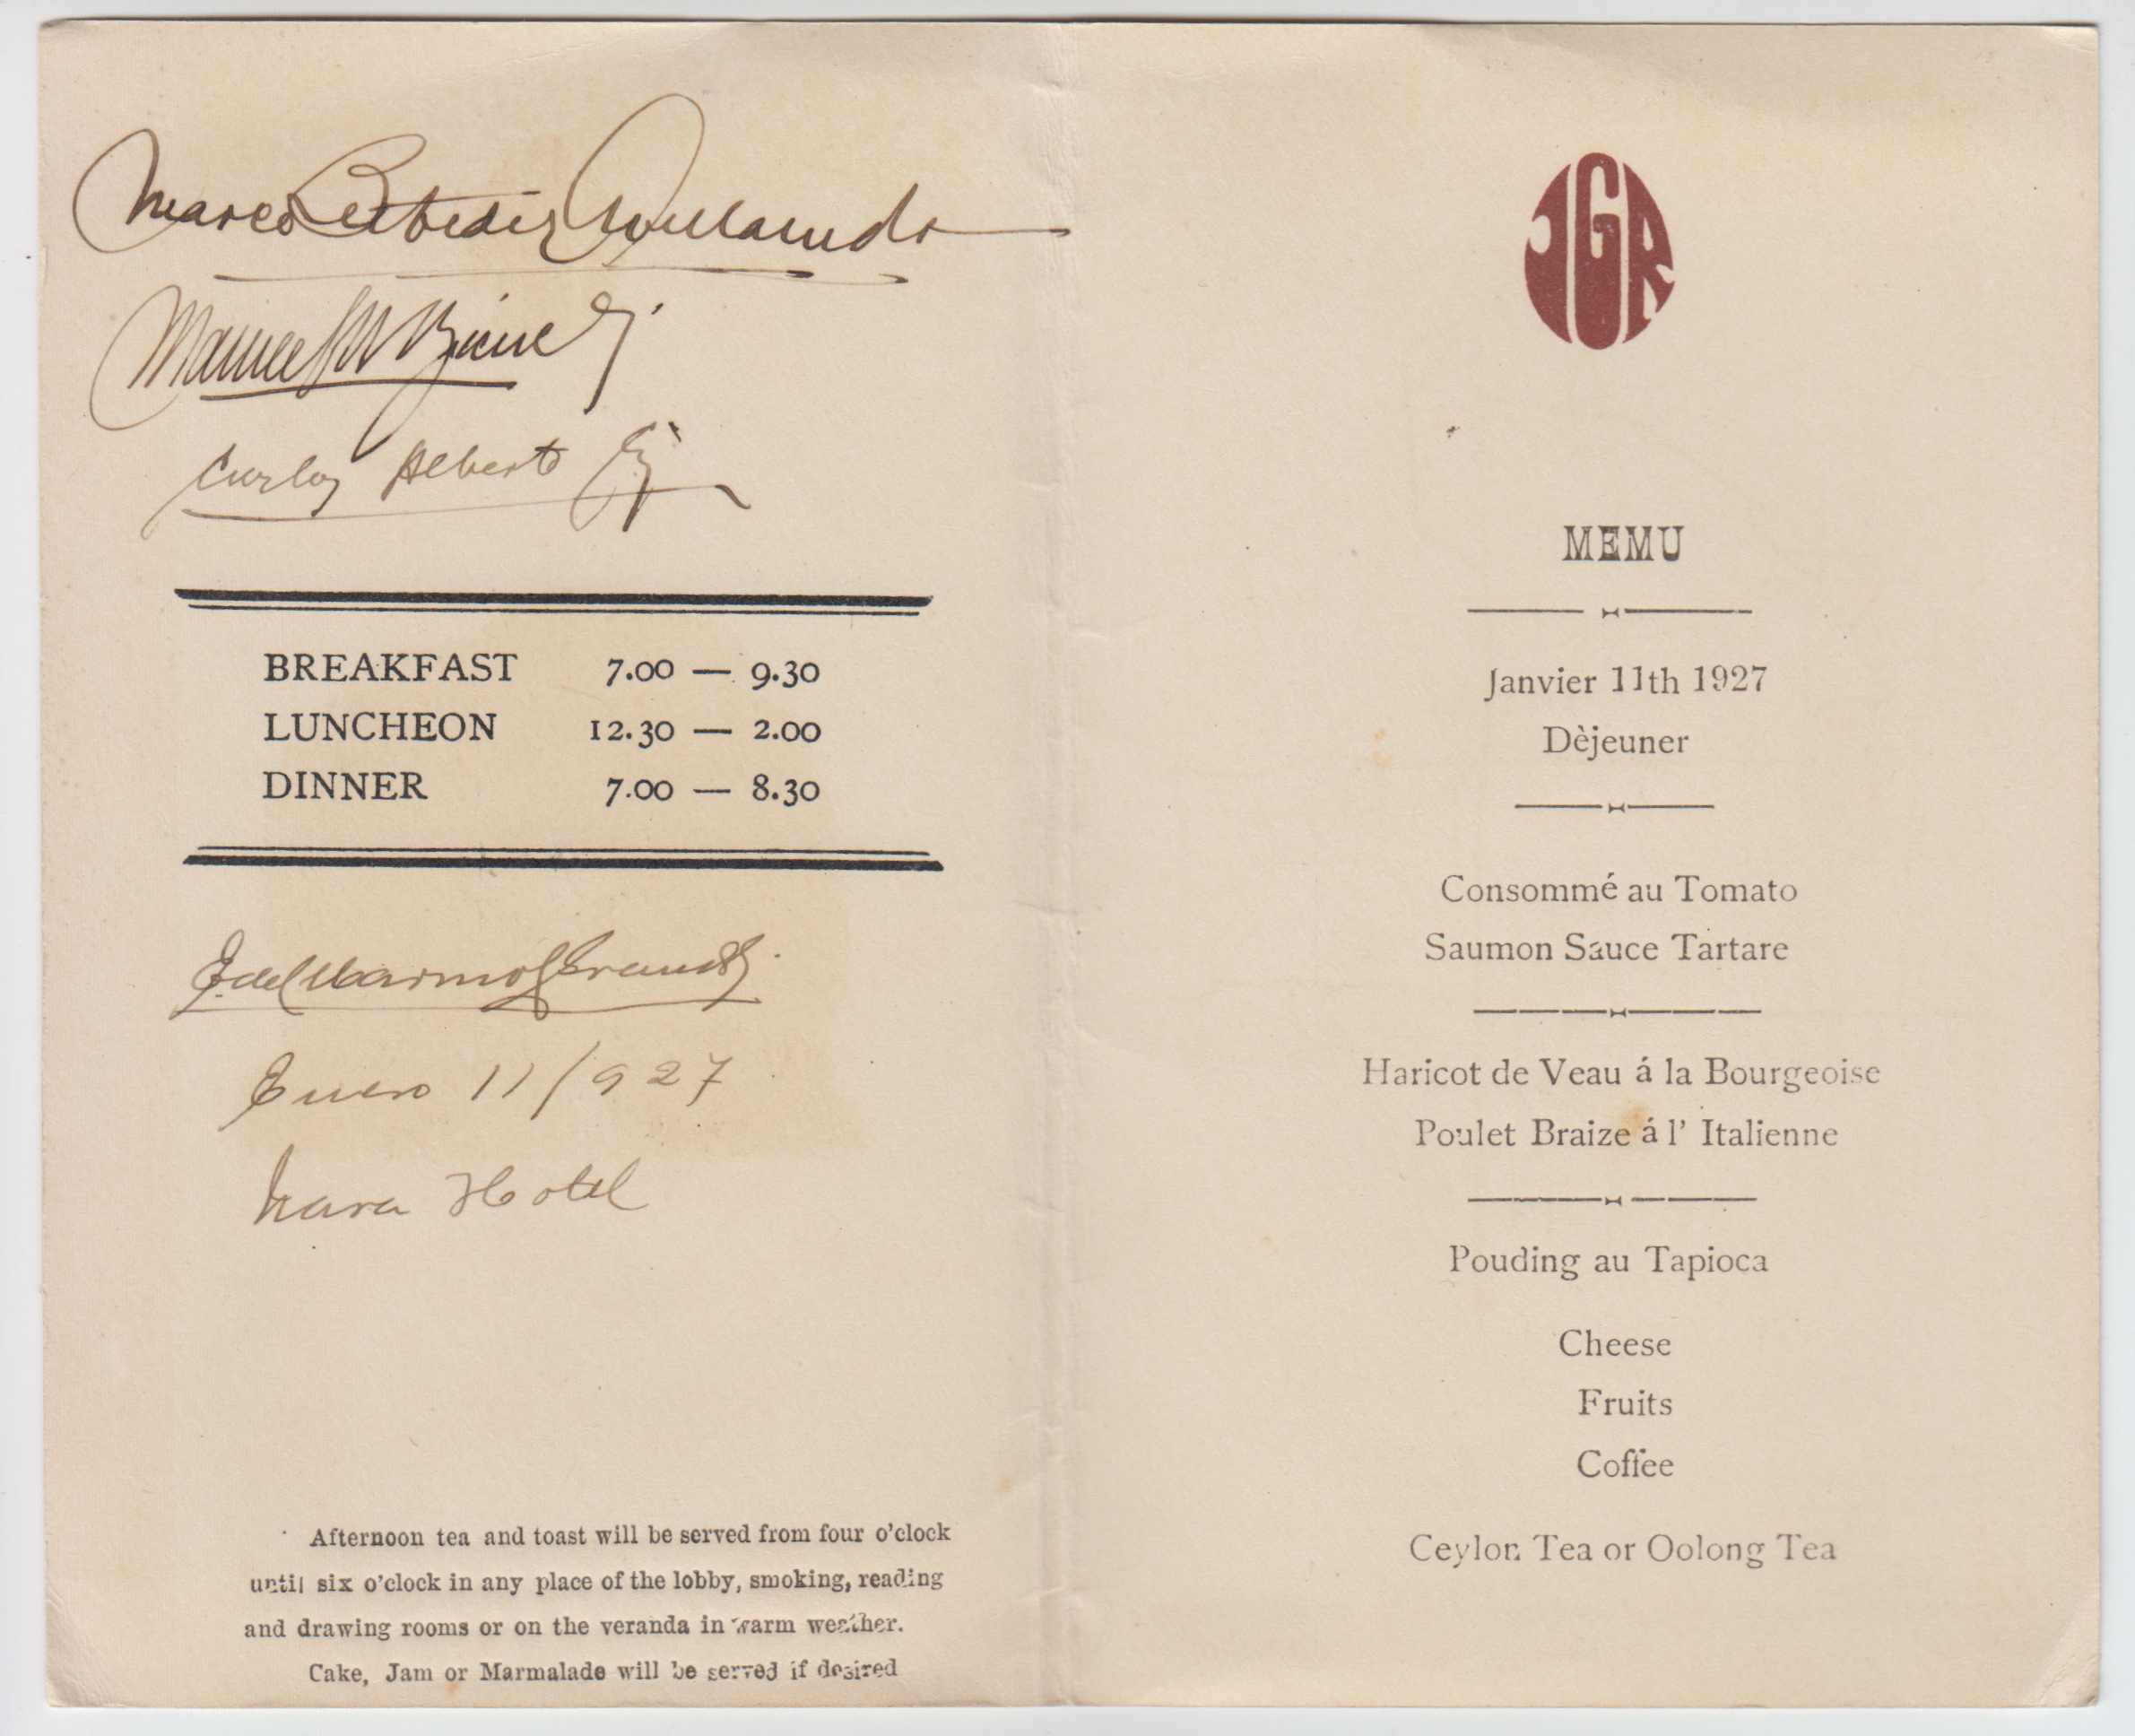 Marco
Carlos Alberto
BREAKFAST 7.00 — 9.30
LUNCHEON 12.30 — 2.00
DINNER 7.00 — 8.30
Enero 11/927
Nara Hotel
Afternoon tea and toast will be served from four o'clock
until six o'clock in any place of the lobby, smoking, reading
and drawing rooms or on the veranda in warm weather.
Cake, Jam or Marmalade will be served if desired
JGR
MEMU
Janvier 11th 1927
Dèjeuner
Consommé au Tomato
Saumon Sauce Tartare
Haricot de Veau á la Bourgeoise
Poulet Braize á l' Italienne
Pouding au Tapioca
Cheese
Fruits
Coffee
Ceylon Tea or Oolong Tea